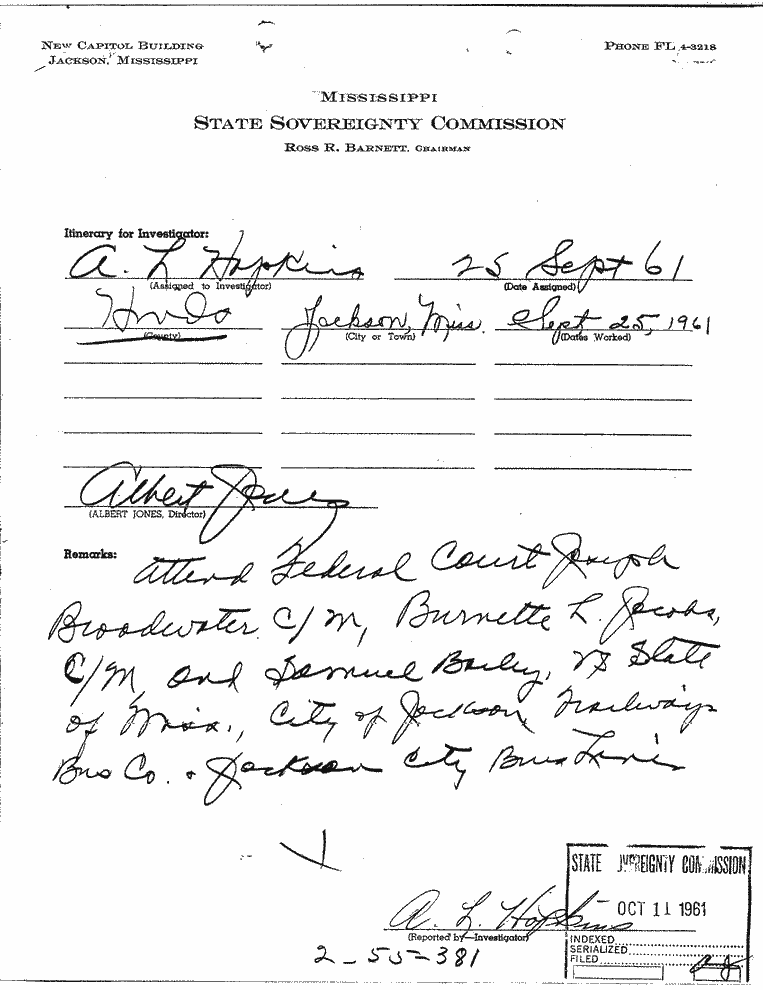 NEW CAPITOL BUILDING
JACKSON, MISSISSIPPI
PHONE FL 4-3218
MISSISSIPPI
STATE SOVEREIGNTY COMMISSION
ROSS R. BARNETT, CHAIRMAN
Itinerary for Investigator:
A. L Hopkins 25 Sept 61
(Assigned to Investigator) (Date Assigned)
Hinds Jackson, Miss. Sept 25, 1961
(County) (City or Town) (Dates Worked)
Albert Jones
(ALBERT JONES, Director)
Remarks:
Attend Federal Court Joseph
Broadwater C/M, Burnette L. Jacobs,
C/M and Samuel Bailey, vs State
of Miss., City of Jackson, Trailways
Bus Co. & Jackson City Bus Lines
STATE SOVEREIGNTY COMMISSION
OCT 11 1961
A. L. Hopkins
(Reported by—Investigator)
2-55-381
INDEXED
SERIALIZED
FILED